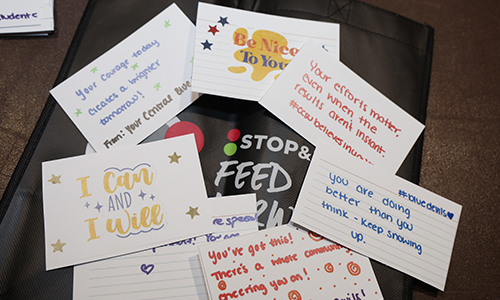 student
Your courage today
creates a brighter
tomorrow!
From: Your Central Blue
Be Nice
To You
Your efforts matter,
even when the
results aren't instant.
STOP&
FEED
I Can
AND
I Will
#bluedevils
you are doing
better than you
think - Keep showing
up.
You've got this!
There's a whole community
cheering you on!